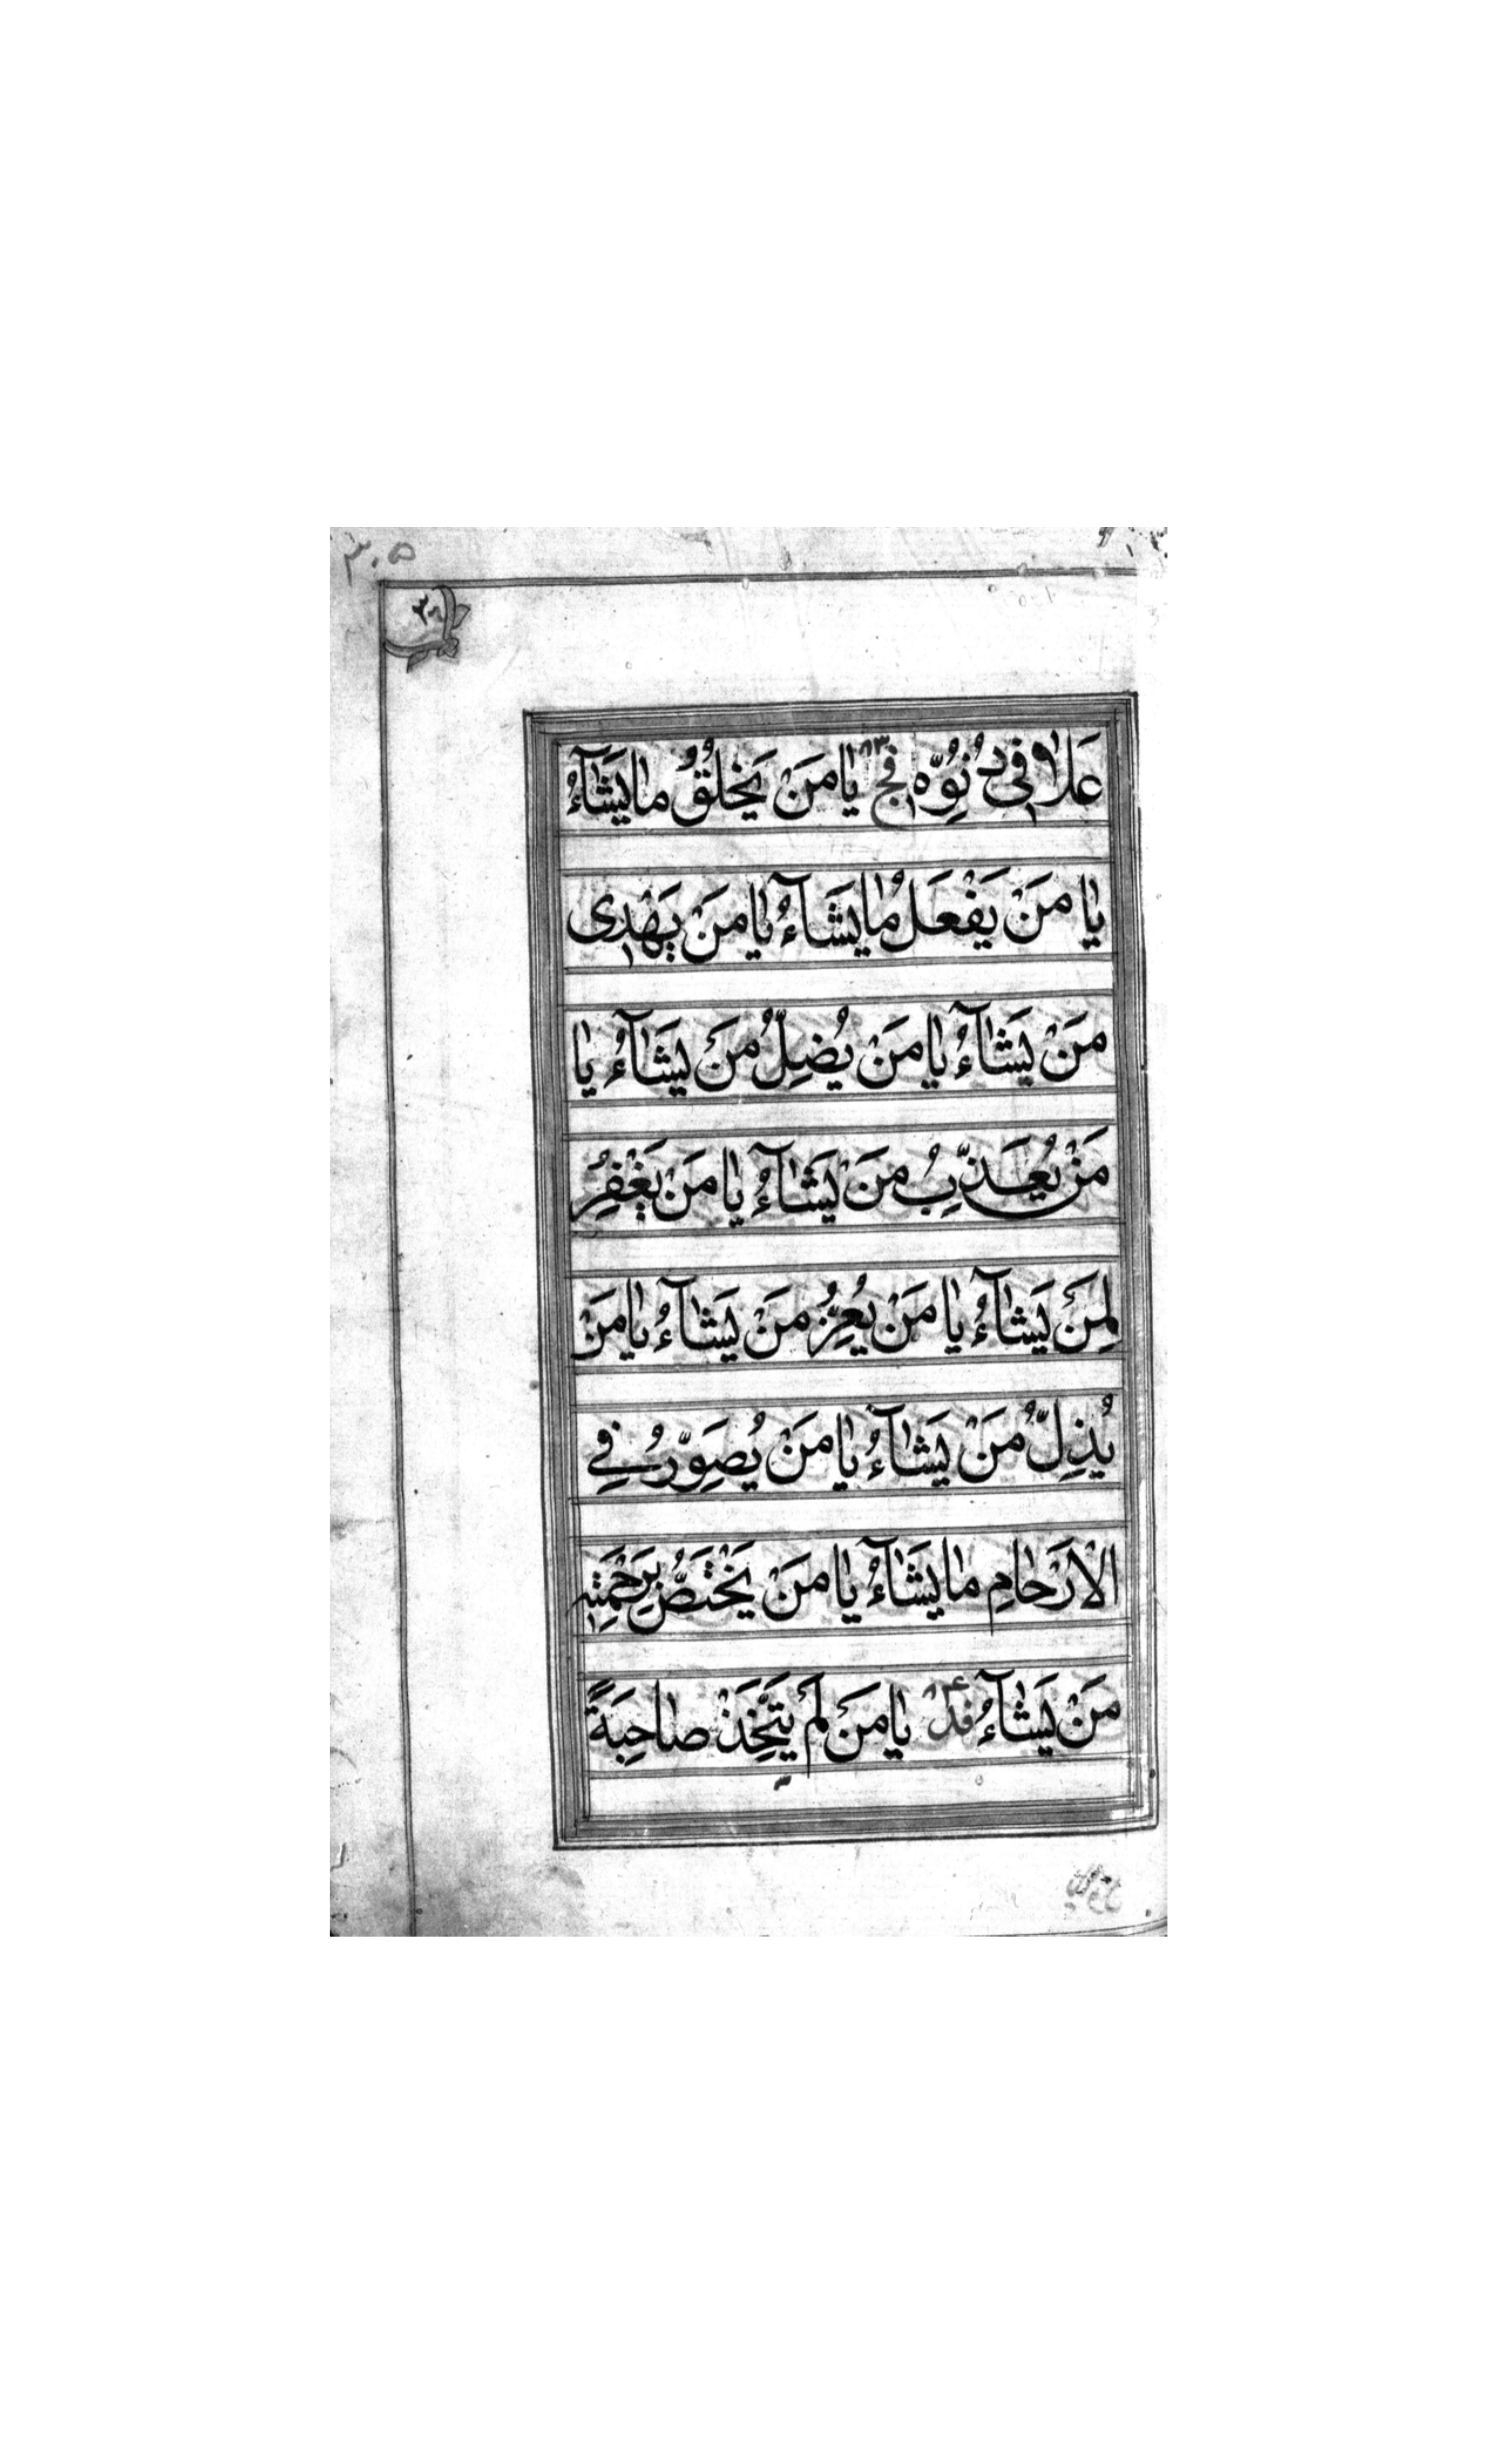 ٣٠٥
عَلا فى دُنُوِّه فج ٨٣ يا مَنْ يَخْلُقُ ما يَشآءُ
يا مَنْ يَفْعَلُ ما يَشآءُ يا مَنْ يَهْدِى
مَنْ يَشآءُ يا مَنْ يُضِلُّ مَنْ يَشآءُ يا
مَنْ يُعَذِّبُ مَنْ يَشآءُ يا مَنْ يَغْفِرُ
لِمَنْ يَشآءُ يا مَنْ يُعِزُّ مَنْ يَشآءُ يا مَنْ
يُذِلُّ مَنْ يَشآءُ يا مَنْ يُصَوِّرُ فِي
الاَرْحامِ ما يَشآءُ يا مَنْ يَخْتَصُّ بِرَحْمَتِه
مَنْ يَشآءُ فد يا مَنْ لَمْ يَتَّخِذْ صاحِبَةً